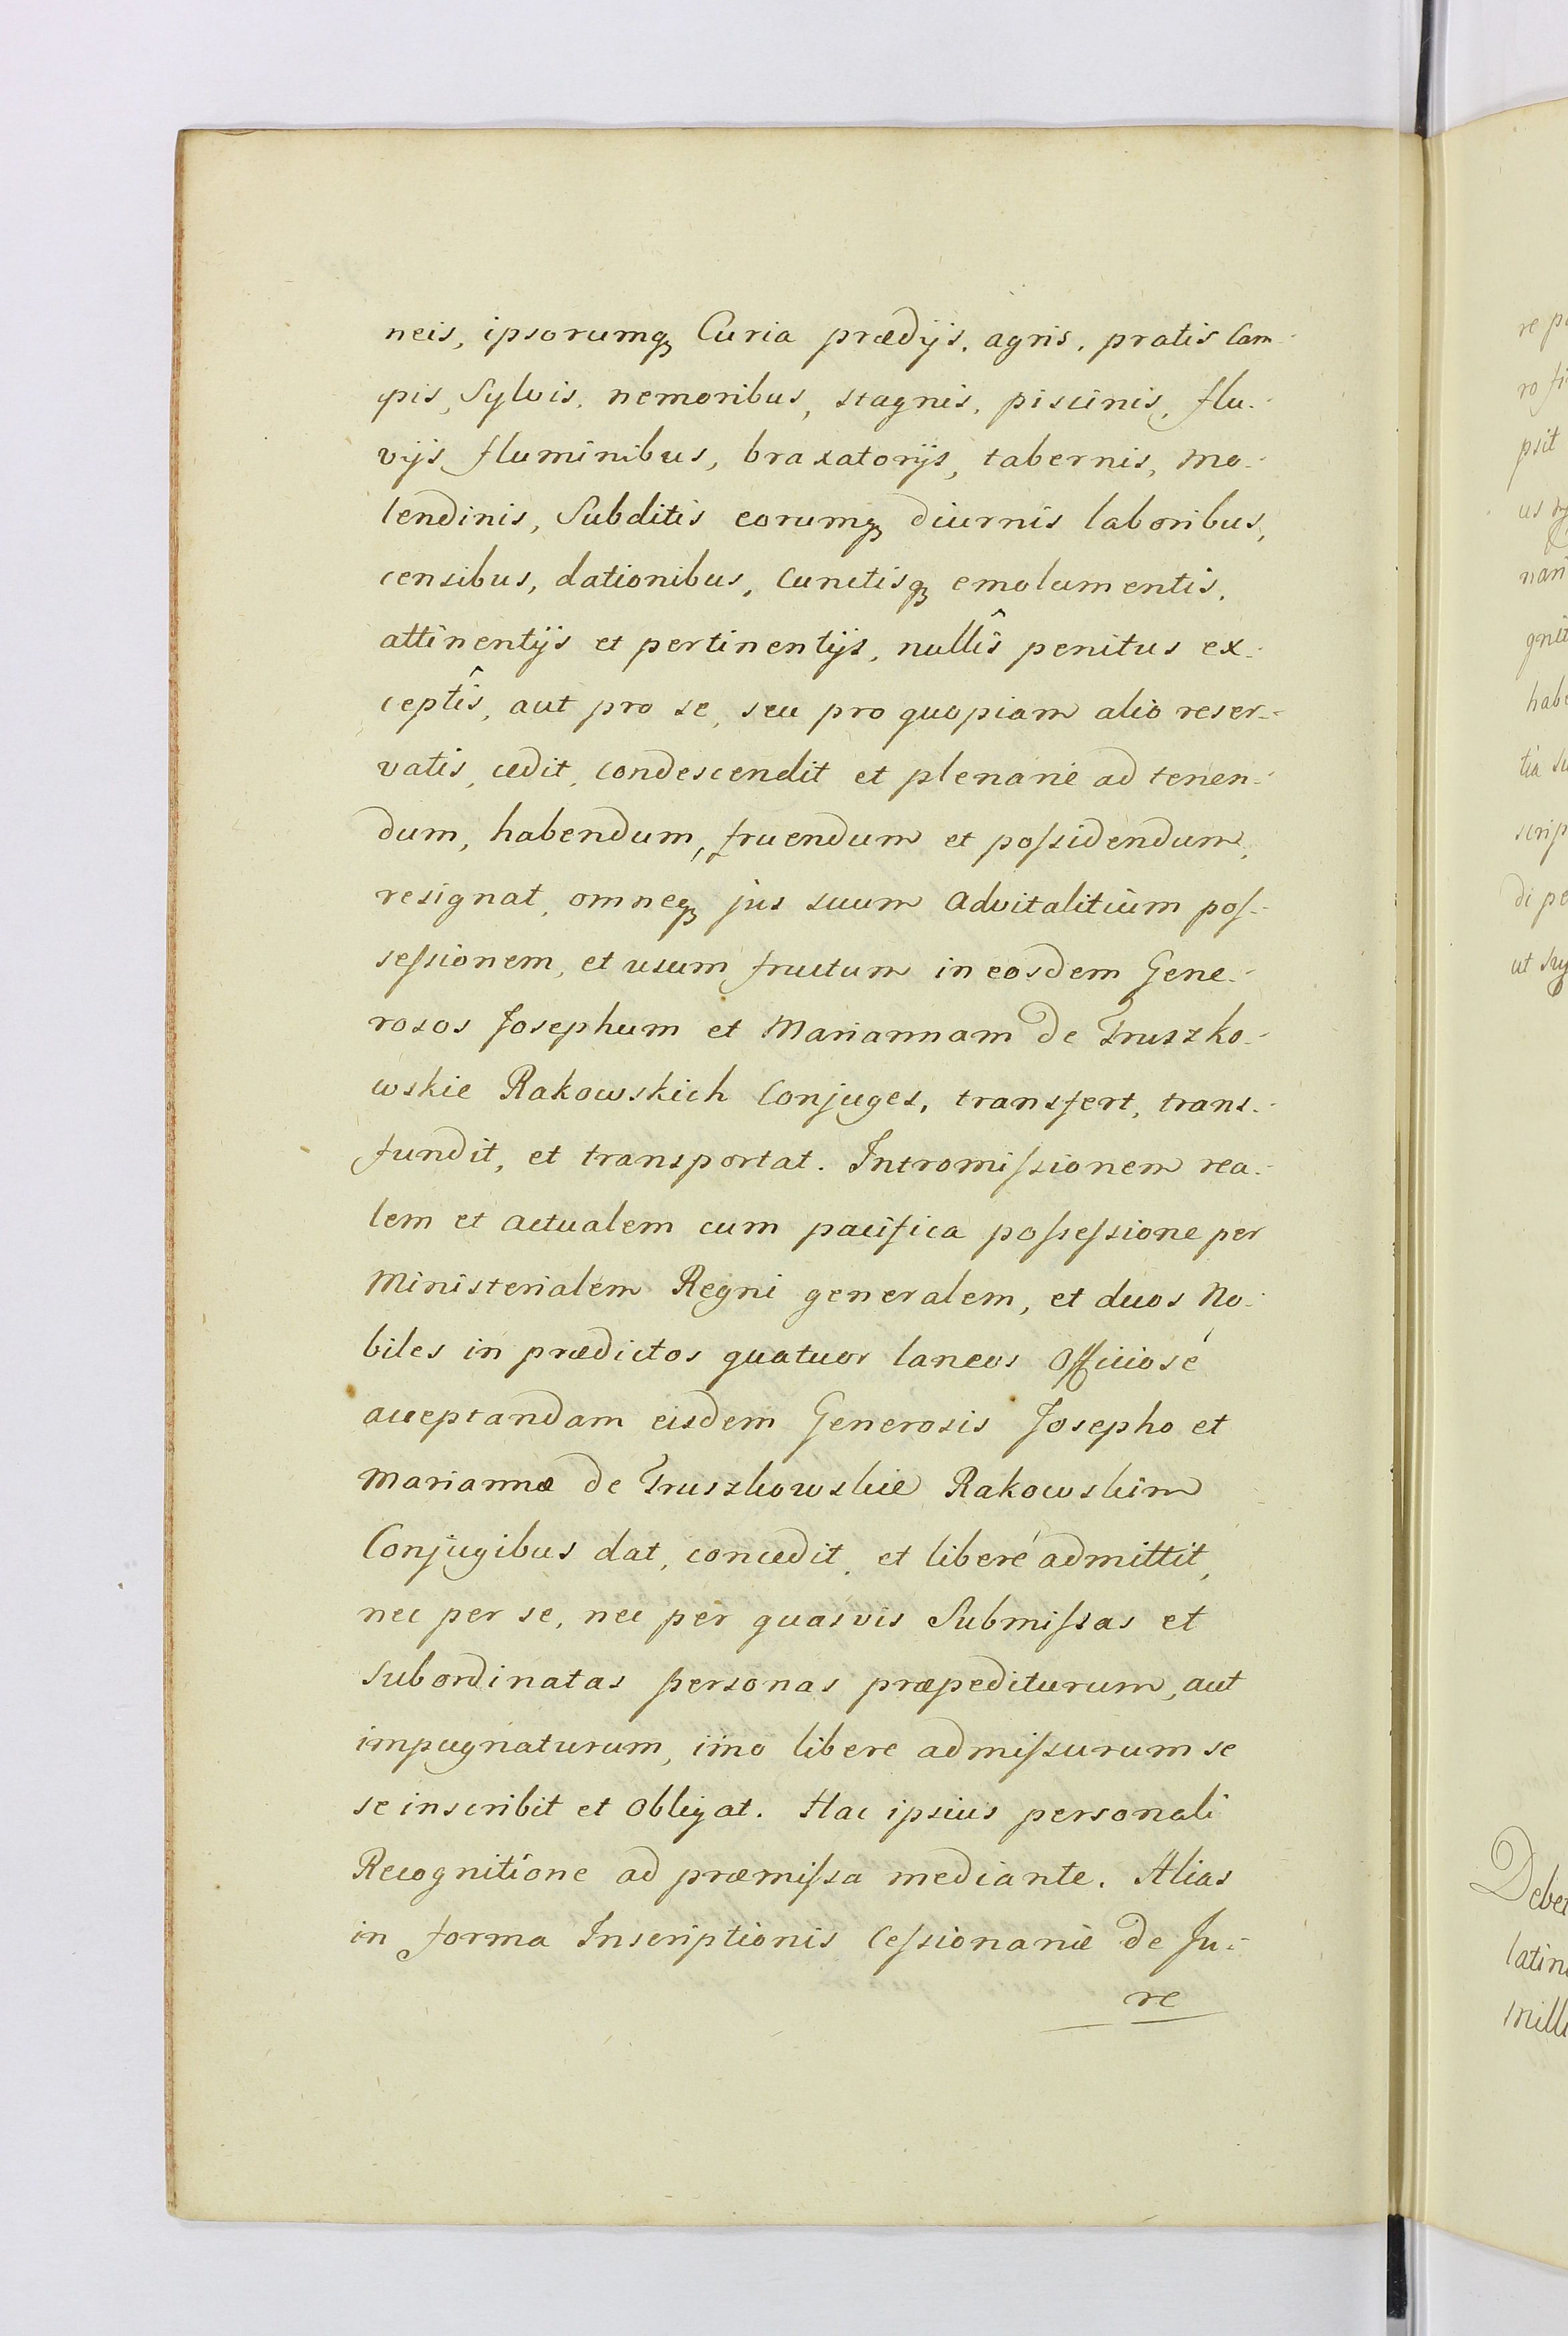 neis, ipsorumq; Curia prædijs, agris, pratis Cam-
pis, Sylvis, nemoribus, stagnis, piscinis, flu-
vijs fluminibus, braxatorijs, tabernis, mo-
lendinis, Subditis eorumq; diurnis laboribus,
censibus, dationibus, Cunctisq; emolumentis,
attinentijs et pertinentijs, nullîs penitus ex-
ceptîs, aut pro se, seu pro quopiam alio reser-
vatis, cedit, condescendit et plenarie ad tenen-
dum, habendum, fruendum et poſsidendum,
resignat, omneq; jus suum Advitalitium poſ-
seſsionem, et usum fructum in eosdem Gene-
rosos Josephum et Mariannam de Truszko-
wskie Rakowskich Conjuges, transfert, trans-
fundit, et transportat. Intromiſsionem rea-
lem et actualem cum pacifica poſseſsione per
Ministerialem Regni generalem, et duos No-
biles in prædictos quatuor laneos Officiosé
acceptandam eisdem Generosis Josepho et
Mariannæ de Truszkowskie Rakowskim
Conjugibus dat, concedit, et liberé admittit,
nec per se, nec per quasvis Submiſsas et
subordinatas personas præpediturum, aut
impugnaturum, imo libere admiſsurum se
se inscribit et Obligat. Hac ipsius personali
Recognitione ad præmiſsa mediante. Alias
in forma Inscriptionis Ceſsionariæ de Ju-
re
re
ro
psit
us
nari
gnit
habe
tia su
scrip
di pe
ut
Debe
latin
mille